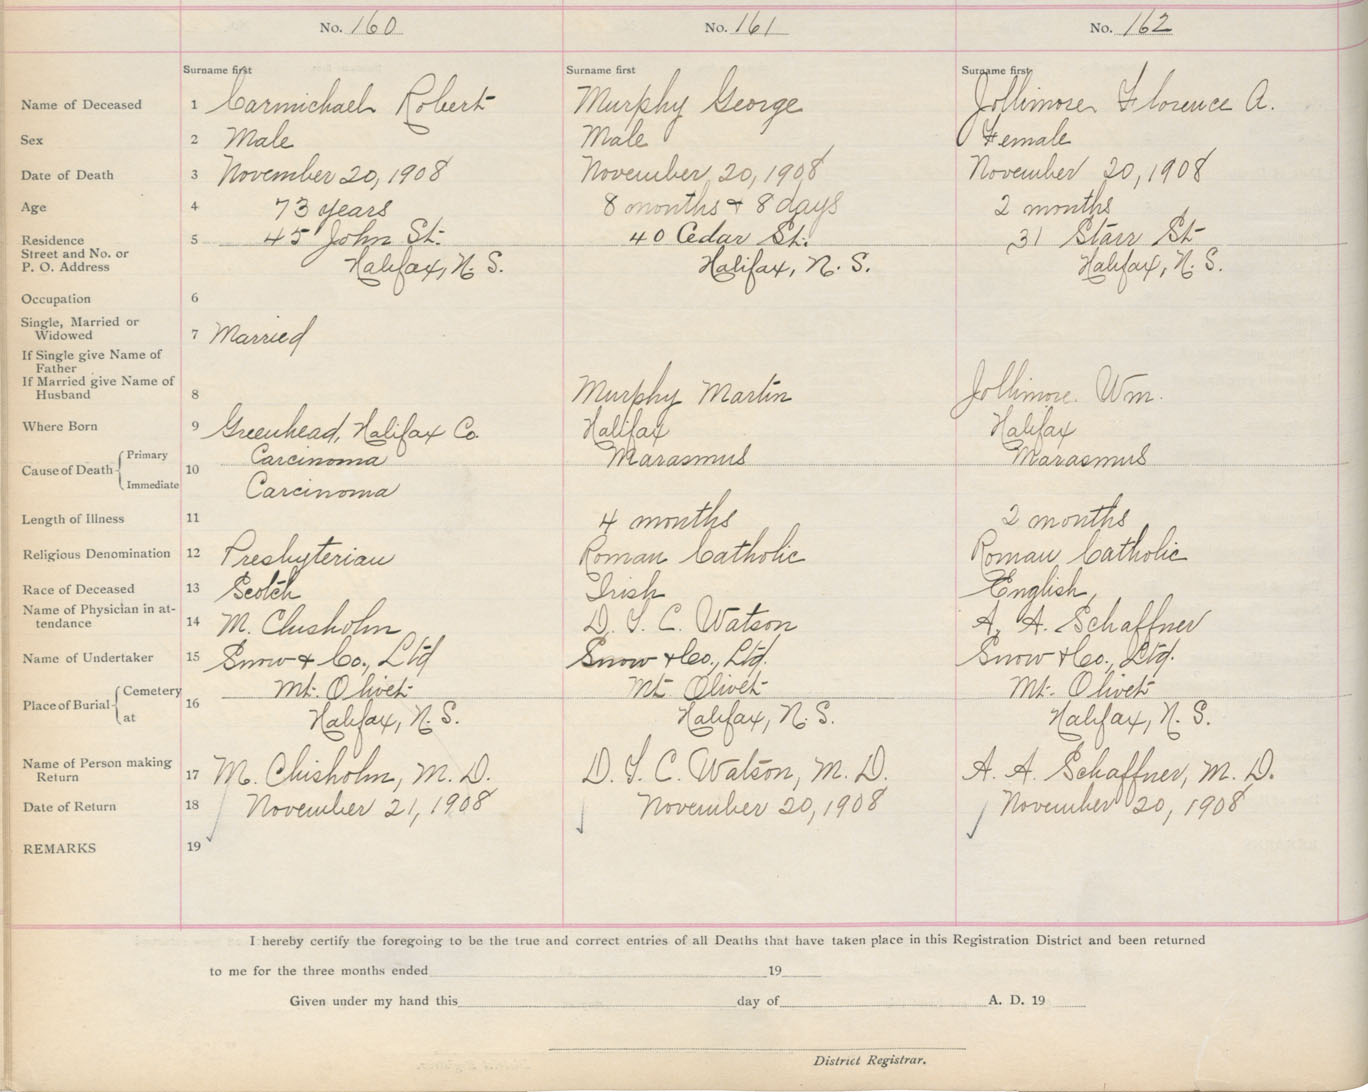 No. 160 No. 161 No. 162
Surname first Surname first Surname first
Name of Deceased 1 Carmichael Robert Murphy George Jollimore Florence A.
Sex 2 Male Male Female
Date of Death 3 November 20, 1908 November 20, 1908 November 20, 1908
Age 4 73 years 8 months & 8 days 2 months
Residence 5 45 John St. 40 Cedar St. 31 Starr St
Street and No. or
P. O. Address Halifax, N. S. Halifax, N. S. Halifax, N. S.
Occupation 6
Single, Married or
Widowed 7 Married
If Single give Name of
Father
If Married give Name of
Husband 8 Murphy Martin Jollimore. Wm.
Where Born 9 Greenhead, Halifax Co. Halifax Halifax
Primary Carcinoma Marasmus Marasmus
Cause of Death 10
Immediate Carcinoma
Length of Illness 11 4 months 2 months
Religious Denomination 12 Presbyterian Roman Catholic Roman Catholic
Race of Deceased 13 Scotch Irish English
Name of Physician in at-
tendance 14 M. Chisholm D. T. C. Watson A. A. Schaffner
Name of Undertaker 15 Snow & Co., Ltd Snow & Co., Ltd. Snow & Co., Ltd.
Cemetery Mt. Olivet Mt Olivet Mt. Olivet
Place of Burial 16
at Halifax, N. S. Halifax, N. S. Halifax, N. S.
Name of Person making
Return 17 M. Chisholm, M. D. D. T. C. Watson, M. D. A. A. Schaffner, M. D.
Date of Return 18 November 21, 1908 November 20, 1908 November 20, 1908
REMARKS 19
I hereby certify the foregoing to be the true and correct entries of all Deaths that have taken place in this Registration District and been returned
to me for the three months ended 19
Given under my hand this day of A. D. 19
District Registrar.